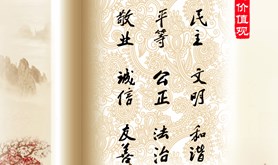 价值观
民主 文明 和谐
平等 公正 法治
敬业 诚信 友善